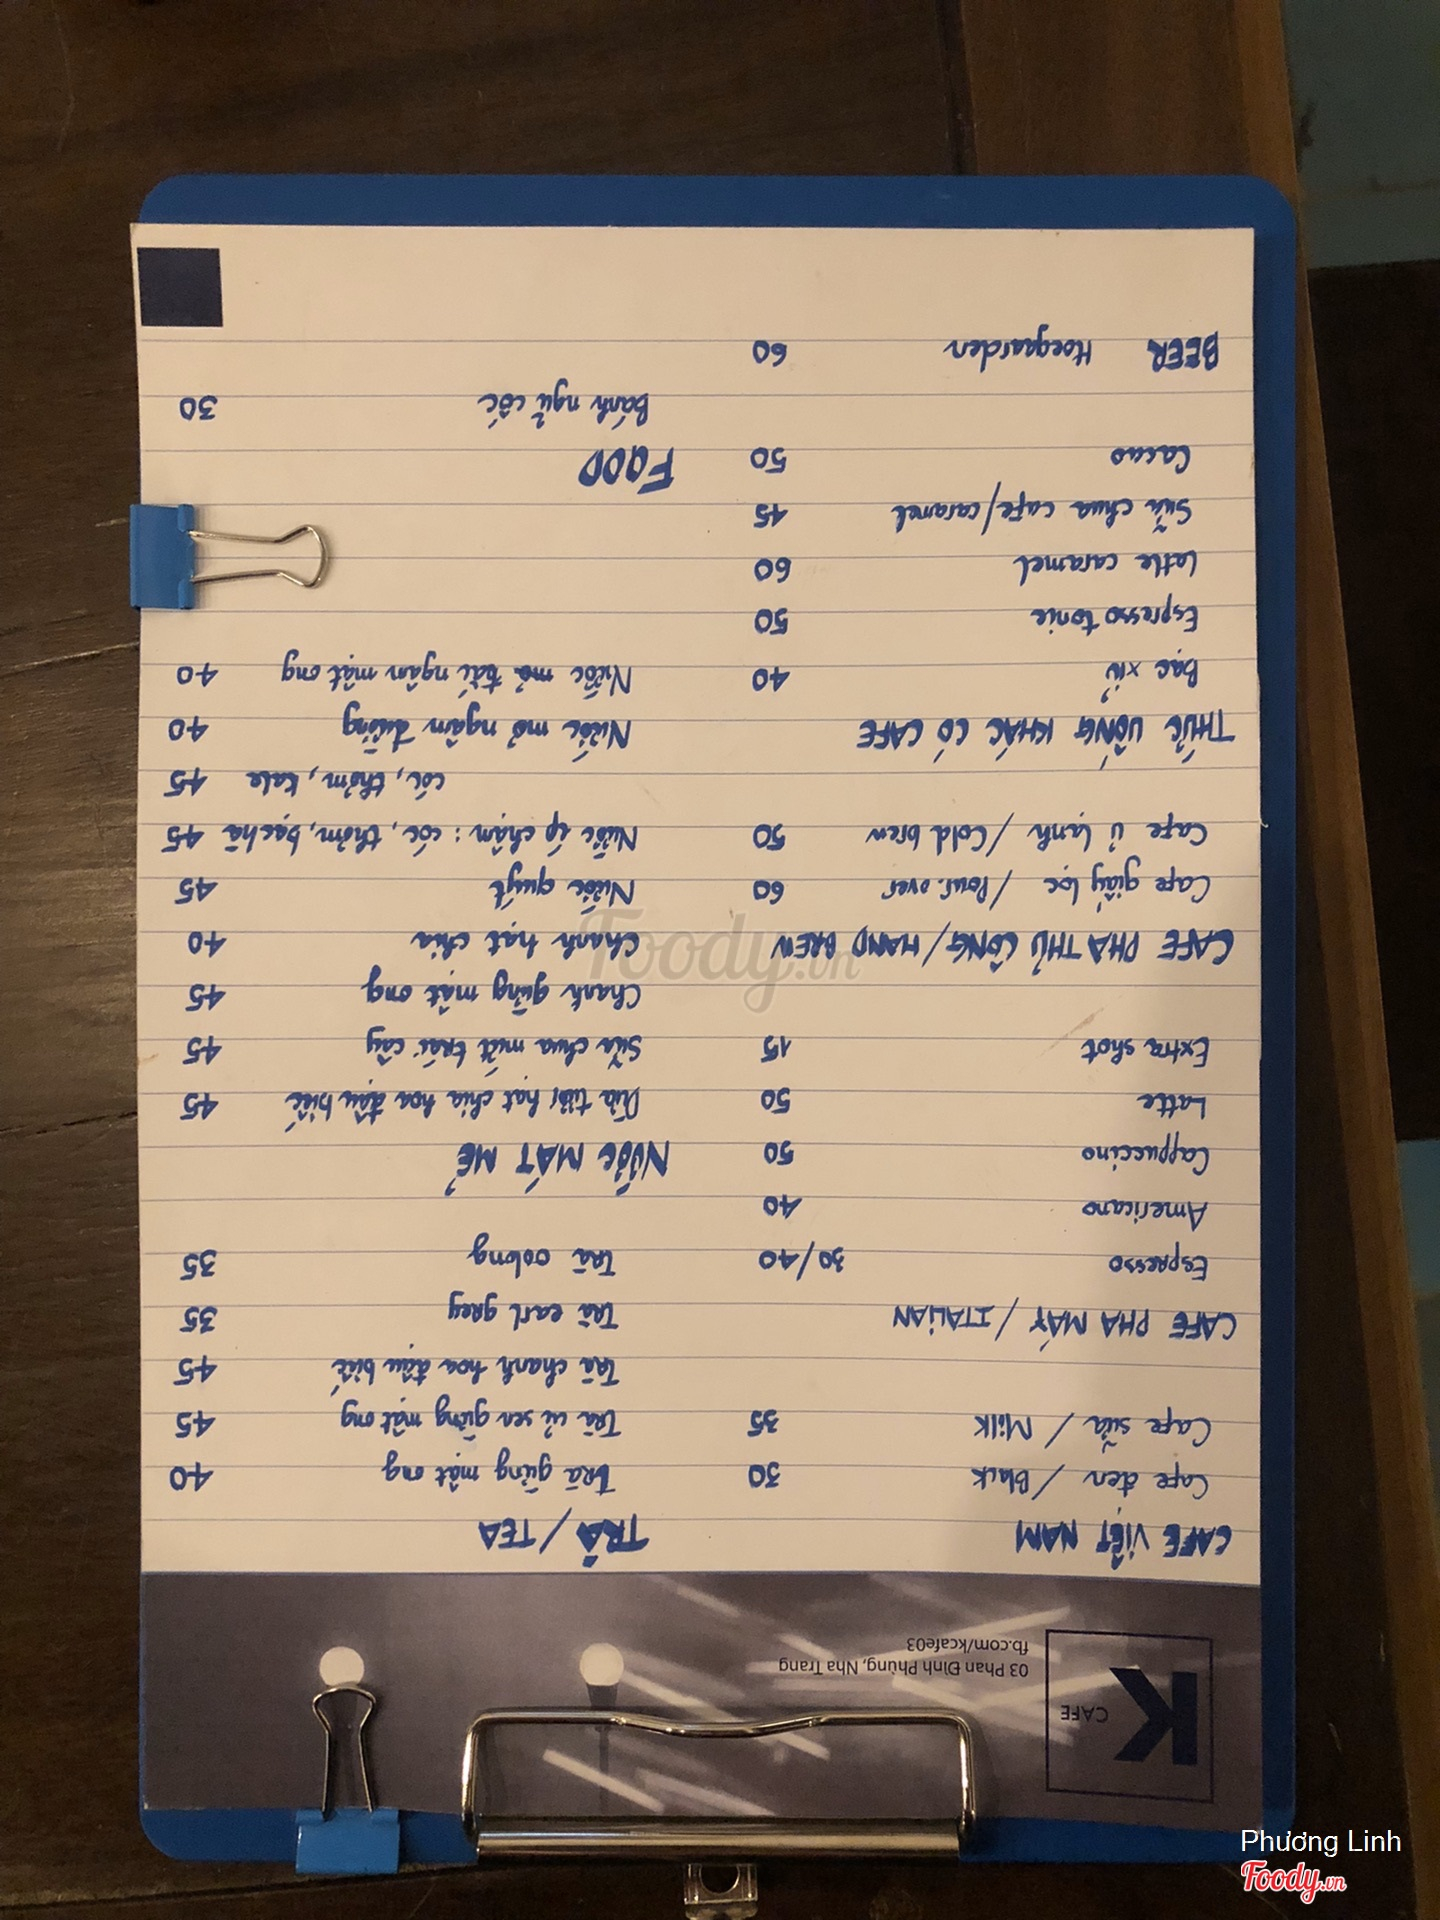 K CAFE
03 Phan Đình Phùng, Nha Trang
fb.com/kcafe03
CAFE VIỆT NAM
Cafe đen / Black 30
Cafe sữa / Milk 35
CAFE PHA MÁY / ITALIAN
Espresso 30/40
Americano 40
Cappuccino 50
Latte 50
Extra shot 15
CAFE PHA THỦ CÔNG / HAND BREW
Cafe giấy lọc / Pour over 60
Cafe ủ lạnh / Cold brew 50
THỨC UỐNG KHÁC CÓ CAFE
Bạc xỉu 40
Espresso tonic 50
Latte caramel 60
Sữa chua cafe/caramel 45
Cacao 50
BEER Hoegaarden 60
TRÀ / TEA
Trà gừng mật ong 40
Trà củ sen gừng mật ong 45
Trà chanh hoa đậu biếc 45
Trà earl grey 35
Trà oolong 35
NƯỚC MÁT MẺ
Dừa tươi hạt chia hoa đậu biếc 45
Sữa chua mứt trái cây 45
Chanh gừng mật ong 45
Chanh hạt chia 40
Nước quýt 45
Nước ép chậm: cóc, thơm, bạc hà 45
cóc, thơm, kale 45
Nước mơ ngâm đường 40
Nước mơ tắc ngâm mật ong 40
FOOD
Bánh ngũ cốc 30
Foody.vn
Phương Linh
Foody.vn